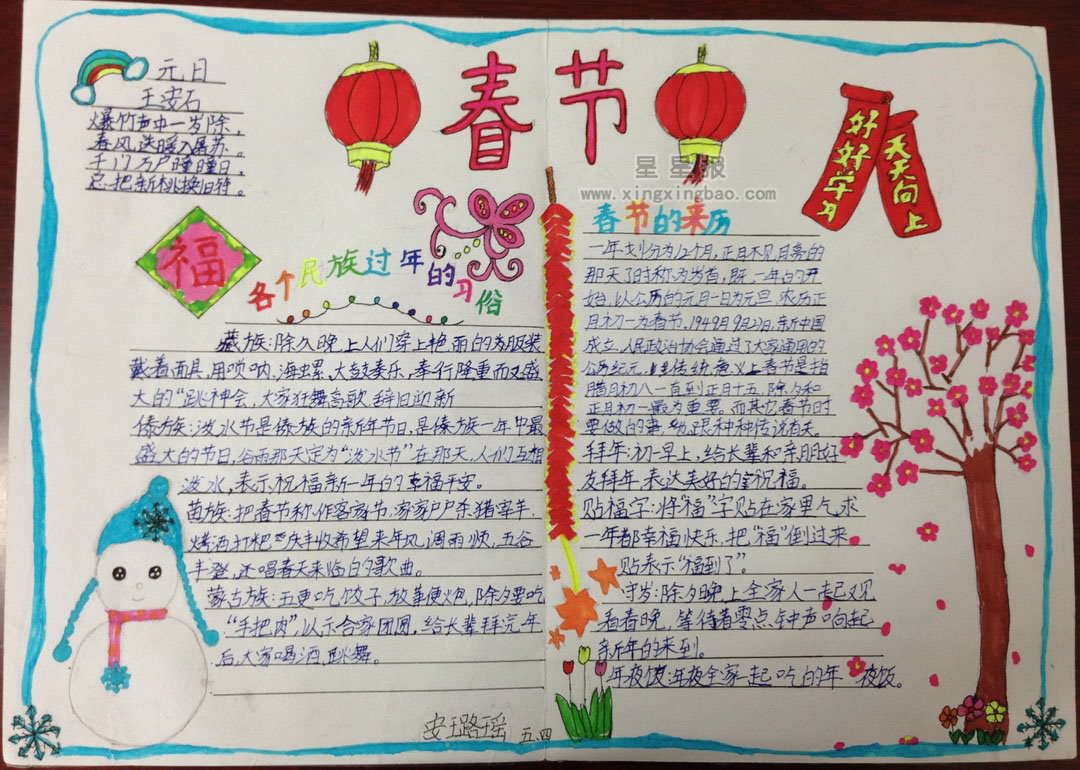 元日
王安石
爆竹声中一岁除，
春风送暖入屠苏。
千门万户瞳瞳日，
总把新桃换旧符。
春节
好好学习
天天向上
星星报
www.xingxingbao.com
福
各个民族过年的习俗
藏族：除夕晚上人们穿上艳丽的为服装
戴着面具，用唢呐，海螺，大鼓奏乐，奉行隆重而又盛
大的“跳神会，大家狂舞高歌辞旧迎新
傣族：泼水节是傣族的新年节日，是傣族一年中最
盛大的节日，谷雨那天定为“泼水节”在那天，人们互相
泼水，表示祝福新一年的幸福平安。
苗族：把春节称作客家节，家家户户杀猪宰羊，
烤酒打粑庆丰收希望来年风调雨顺，五谷
丰登，还唱春天来临白的歌曲。
蒙古族：五更吃饺子，放鞭火包，除夕要吃
“手把肉”，以示合家团圆，给长辈拜完年
后，大家喝酒，跳舞。
安璐瑶 五、四
春节的来历
一年划分为12个月，正月不见月亮的
那天了时称为岁首，既一年的开
始，以公历的元月一日为元旦，农历正
月初一为春节，1949月9月27日，新中国
成立，人民政治协会通过了大家通用的
公历纪元，传统意义上春节是指
腊月初八一直到正月十五，除夕和
正月初一最为重要。而其它春节时
要做的事，动跟种种传说有关。
拜年：初一早上，给长辈和亲朋好
友拜年，表达美好的祝福。
贴福字：将“福”字贴在家里气求
一年都幸福快乐，把“福”倒过来
贴表示“福到了”。
守岁：除夕晚上全家人一起又见
看春晚，等待着零点钟声响起
新年的来到。
年夜饭：年夜全家一起吃的年夜饭。